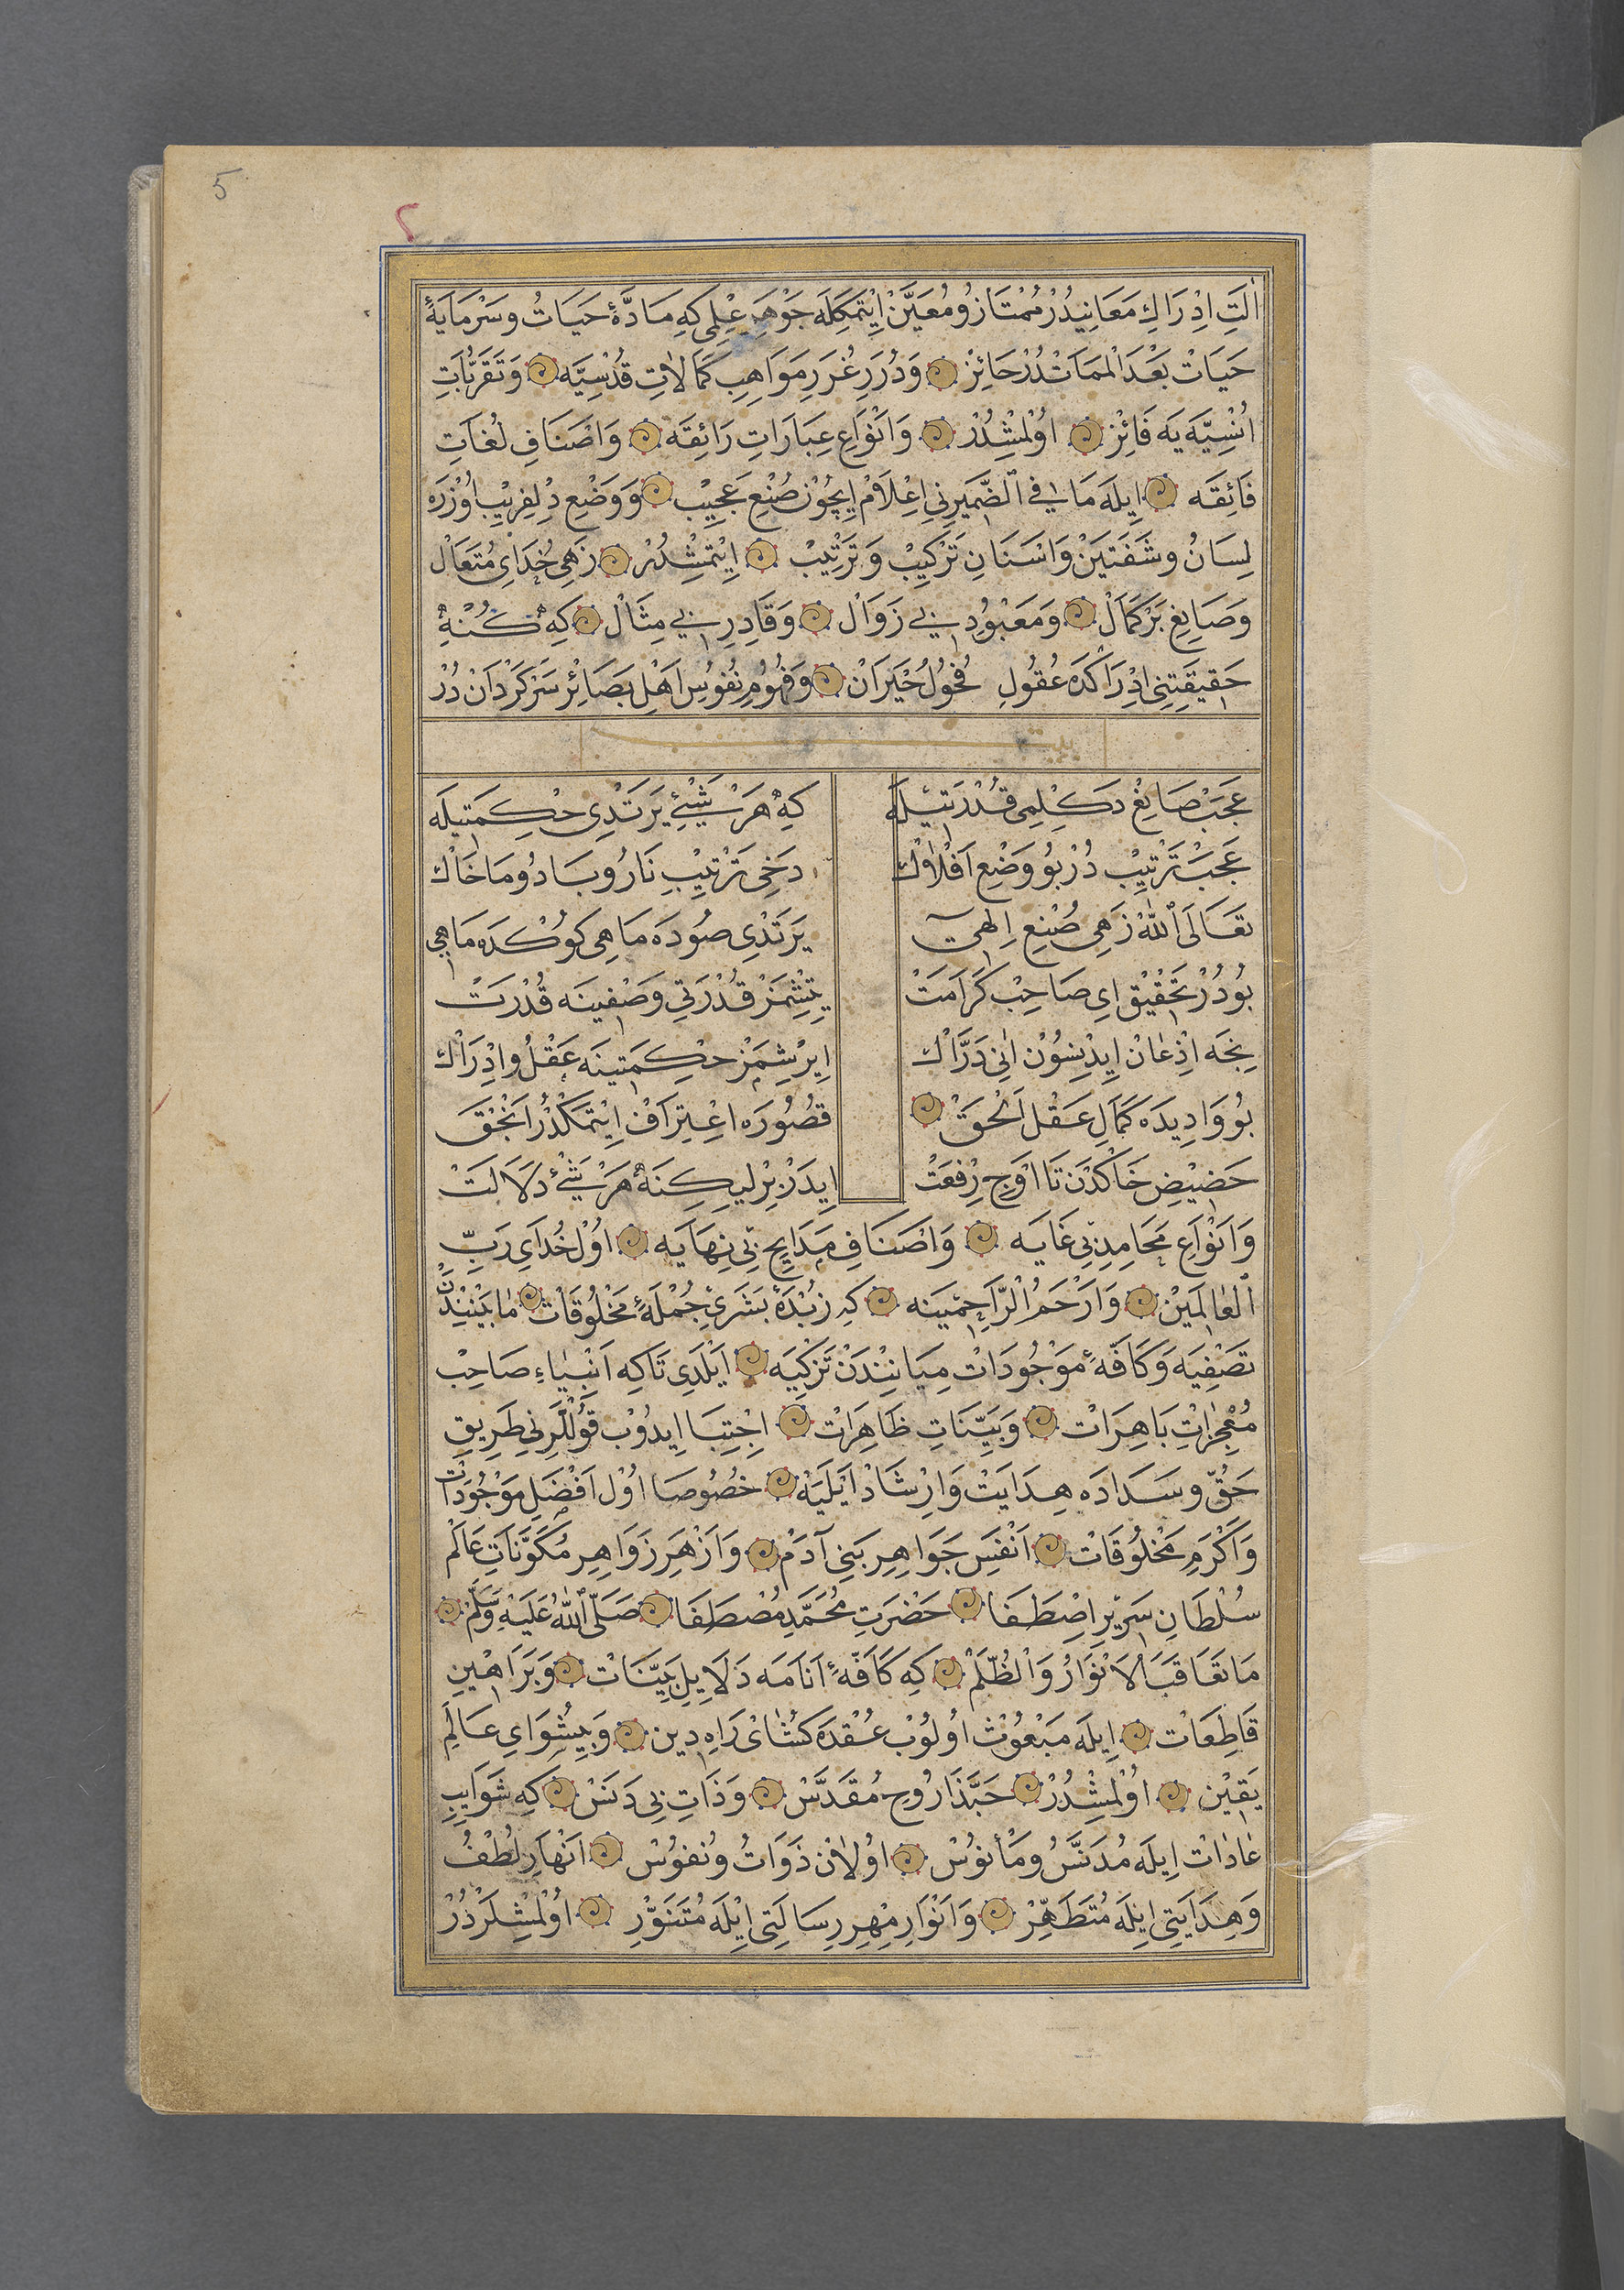 5
٢
اٰلَتِ اِدْرَاكِ مَعَانِيدُرْ مُمْتَازُ و مُعَيَّنْ اِيْتمَكِلَه جَوْهَرِ عِلْمِى كِه مَادَّۀِ حَيَاتُ و سَرْمَايَۀِ
حَيَاتْ بَعْدَ الْمَمَاتْدُرْ حَائِزْ وَ دُرَرِ غُرَرِ مَوَاهِبِ كَمَالَاتِ قُدْسِيَّه وَ تَقَرُّبَاتِ
اُنْسِيَّه يَه فَائِزْ اوُلْمِشْدُرْ وَ اَنْوَاعِ عِبَارَاتِ رَائِقَه وَ اَصْنَافِ لُغَاتِ
فَائِقَه اِيلَه مَا فِي الضَّمِيرِنِى اِعْلَامْ اِيچُونْ صُنْعِ عَجِيبْ وَ وَضْعِ دِلْفِرِيبْ اُوزْرَه
لِسَانُ و شَفَتَيَنْ وَ اَسْنَانِ تَرْكِيبْ وَ تَرْتِيبْ اِيْتمِشْدُرْ زَهِى خُدَاىِ مُتَعَالْ
وَ صَانِعِ بَرْكَمَالْ وَ مَعْبُودِ بِى زَوَالْ وَ قَادِرِ بِى مِثَالْ كِه كُنْهِ
حَقِيقَتِنِى اِدْرَاكْدَه عُقُولِ فُحُولُ حَيْرَانْ وَ فُهُومِ نُفُوسِ اَهْلِ بَصَائِرْ سَرْكَرْدَانْ دُرْ
بيت
عَجَبْ صَانِعْ دَكِلْمِى قُدْرَتِيلَه كِه هَرْ شَيْئِ يَرَتْدِى حِكْمَتِيلَه
عَجَبْ تَرْتِيبْ دُرْ بُو وَضْعِ اَفْلَاكْ دَخِى تَرْتِيبِ نَارُ و بَادُ و مَا خَاكْ
تَعَالَى اللّٰه زَهِى صُنْعِ اِلٰهِى يَرَتْدِى صُودَه مَاهِى كَوُكْدَه مَاهِى
بُودُرْ تَحْقِيقْ اِى صَاحِبْ كَرَامَتْ يِتِشْمَزْ قُدْرَتِى وَصْفِينَه قُدْرَتْ
نِجَه اِذْعَانْ اِيدِيسُونْ اٰنِى دَرَّاكْ اِيرِشِمَزْ حِكْمَتِينَه عَقْلُ و اِدْرَاكْ
بُو وَادِيدَه كَمَالِ عَقْلِ اَلْحَقْ قُصُورَه اِعْتِرَافْ اِيْتمَكْدُرْ اَنْجَقْ
حَضِيضِ خَاكْدَنْ تَا اَوْجِ رِفْعَتْ اِيدَرْ بِرْلِيكِنَه هَرْ شَيْئِ دَلَالَتْ
وَ اَنْوَاعِ مَحَامِدِ بِى غَايَه وَ اَصْنَافِ مَدَايِحِ بِى نِهَايَه اوُلْ خُدَاىِ رَبِّ
الْعَالَمِينْ وَ اَرْحَمُ الرَّاحِمِينَه كِه زُبْدَۀِ بَشَرِى جُمْلَۀِ مَخْلُوقَاتْ مَابَيْنِيندَنْ
تَصْفِيَه وَ كَافَّۀِ مَوْجُودَاتْ مِيَانِنْدَنْ تَزْكِيَه اَيْلَدِى تَا كِه اَنْبِيَاءِ صَاحِبْ
مُعْجِزَاتِ بَاهِرَاتْ وَ بَيِّنَاتِ ظَاهِرَاتْ اِجْتِبَا اِيدُوبْ قُولْلَرِنِى طَرِيقِ
حَقُّ و سَدَادَه هِدَايَتْ وَ اِرْشَادْ اَيْلَيَه خُصُوصَا اوُلْ اَفْضَلِ مَوْجُودَاتْ
وَ اَكْرَمِ مَخْلُوقَاتْ اَنْفَسِ جَوَاهِرِ بَنِى آدَمْ وَ اَزْهَرِ زَوَاهِرِ مُكَوَّنَاتِ عَالَمْ
سُلْطَانِ سَرِيرِ اِصْطَفَا حَضْرَتِ مُحَمَّدِ مُصْطَفَا صَلَّى اللّٰهُ عَلَيْهِ وَسَلَّمْ
مَا تَعَاقَبَ الْاَنْوَارُ وَ الْظُّلَمْ كِه كَافَّۀِ اَنَامَه دَلَايِلِ بَيِّنَاتْ وَ بَرَاهِينِ
قَاطِعَاتْ اِيلَه مَبْعُوثْ اوُلُوبْ عُقْدَه كُشَاىْ رَاهِ دِين وَ پِيشْوَاىِ عَالَمِ
يَقِينْ اوُلْمِشْدُرْ حَبَّذَا رُوحِ مُقَدَّسْ وَ ذَاتِ بِى دَنَسْ كِه شَوَايِبِ
عَادَاتْ اِيلَه مُدَنَّسُ و مَأْنوُسْ اوُلَانْ ذَوَاتُ و نُفوُسْ اَنْهَارِ لُطْفُ
وَ هِدَايَتِى اِيلَه مُتَطَهِّرْ وَ اَنْوَارِ مِهْرِ رِسَالَتِى اِيْلَه مُتَنَوِّرِ اوُلْمِشْلَرْدُرْ